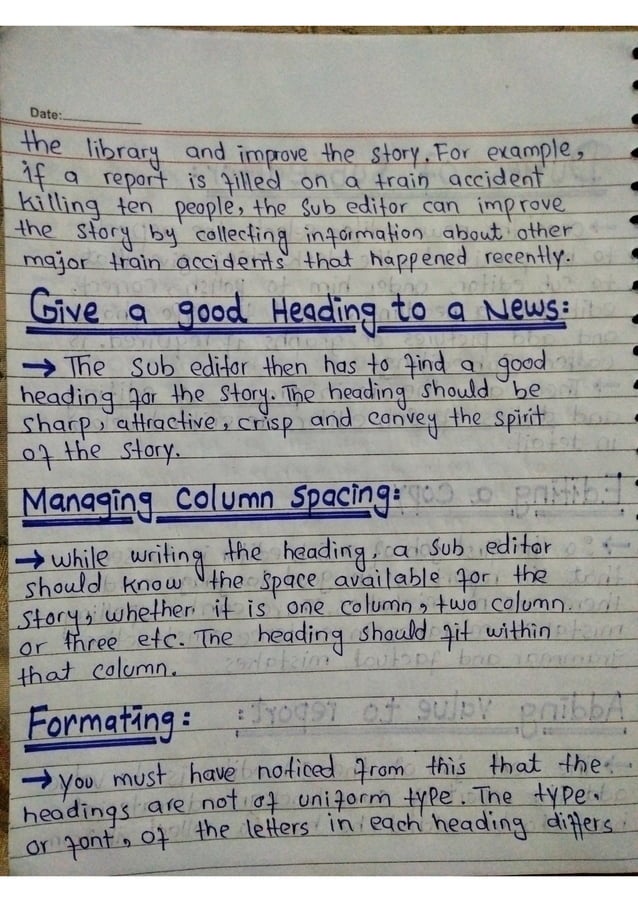 Date:
the library and improve the story. For example,
if a report is filled on a train accident
killing ten people, the sub editor can improve
the story by collecting information about other
major train accidents that happened recently.
Give a good Heading to a News:
→ The sub editor then has to find a good
heading for the story. The heading should be
sharp, attractive, crisp and convey the spirit
of the story.
Managing Column Spacing:
→ while writing the heading, a sub editor
should know the space available for the
story, whether it is one column, two column
or three etc. The heading should fit within
that column.
Formating:
→ you must have noticed from this that the
headings are not of uniform type. The type.
or font, of the letters in each heading differs